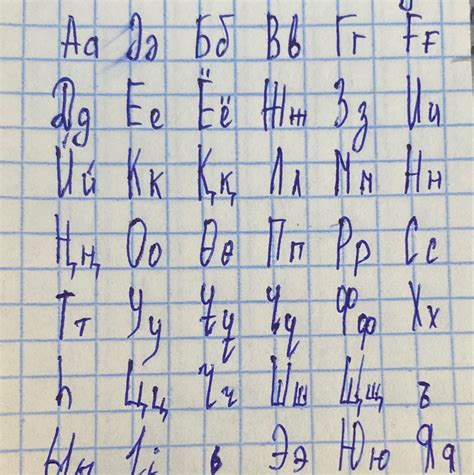 Аа Әә Бб Вв Гг Ғғ
Дд Ее Ёё Жж Зз Ии
Йй Кк Ққ Лл Мм Нн
Ңң Оо Өө Пп Рр Сс
Тт Уу Ұұ Үү Фф Хх
һ Цц Чч Шш Щщ ъ
Ыы Іі ь Ээ Юю Яя